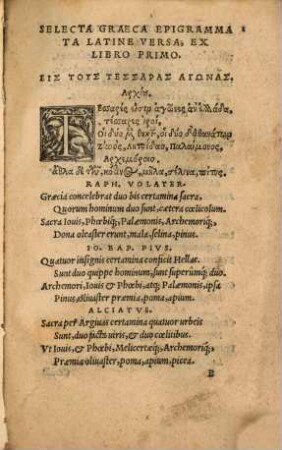 SELECTA GRAECA EPIGRAMMA
TA LATINE VERSA, EX
LIBRO PRIMO.
ΕΙΣ ΤΟΥΣ ΤΕΣΣΑΡΑΣ ΑΓΩΝΑΣ,
Αρχίυ.
Τέσσαρές εἰσιν ἀγῶνες ἀν᾽ ἑλλάδα,
τέσσαρες ἱροί,
οἱ δύο μὲν θνητῶν, οἱ δύο δ᾽ ἀθανάτων
ζηνὸς, Λητοΐδαο, Παλαίμονος,
Αρχεμόροιο
ἆθλα δὲ τῶν, κότινος, μῆλα, σέλινα, πίτυς.
RAPH. VOLATER.
Græcia concelebrat duo bis certamina sacra.
Quorum hominum duo sunt, cætera cœlicolum.
Sacra Iouis, Phœbiq́;, Palæmonis, Archemoriq́;.
Dona oleaster erunt, mala, selina, pinus.
IO. BAP. PIVS.
Quatuor insignis certamina conficit Hellas.
Sunt duo quippe hominum, sunt superûmq́; duo.
Archemori, Iouis & Phœbi, atq́; Palæmonis, ipsa
Pinus, oliuaster præmia, poma, apium.
ALCIATVS.
Sacra per Argiuas certamina quatuor urbeis
Sunt, duo facta uiris, & duo cœlitibus.
Vt Iouis, & Phœbi, Melicertæq́;, Archemoriq́;,
Præmia oliuaster, poma, apium, picea.
B